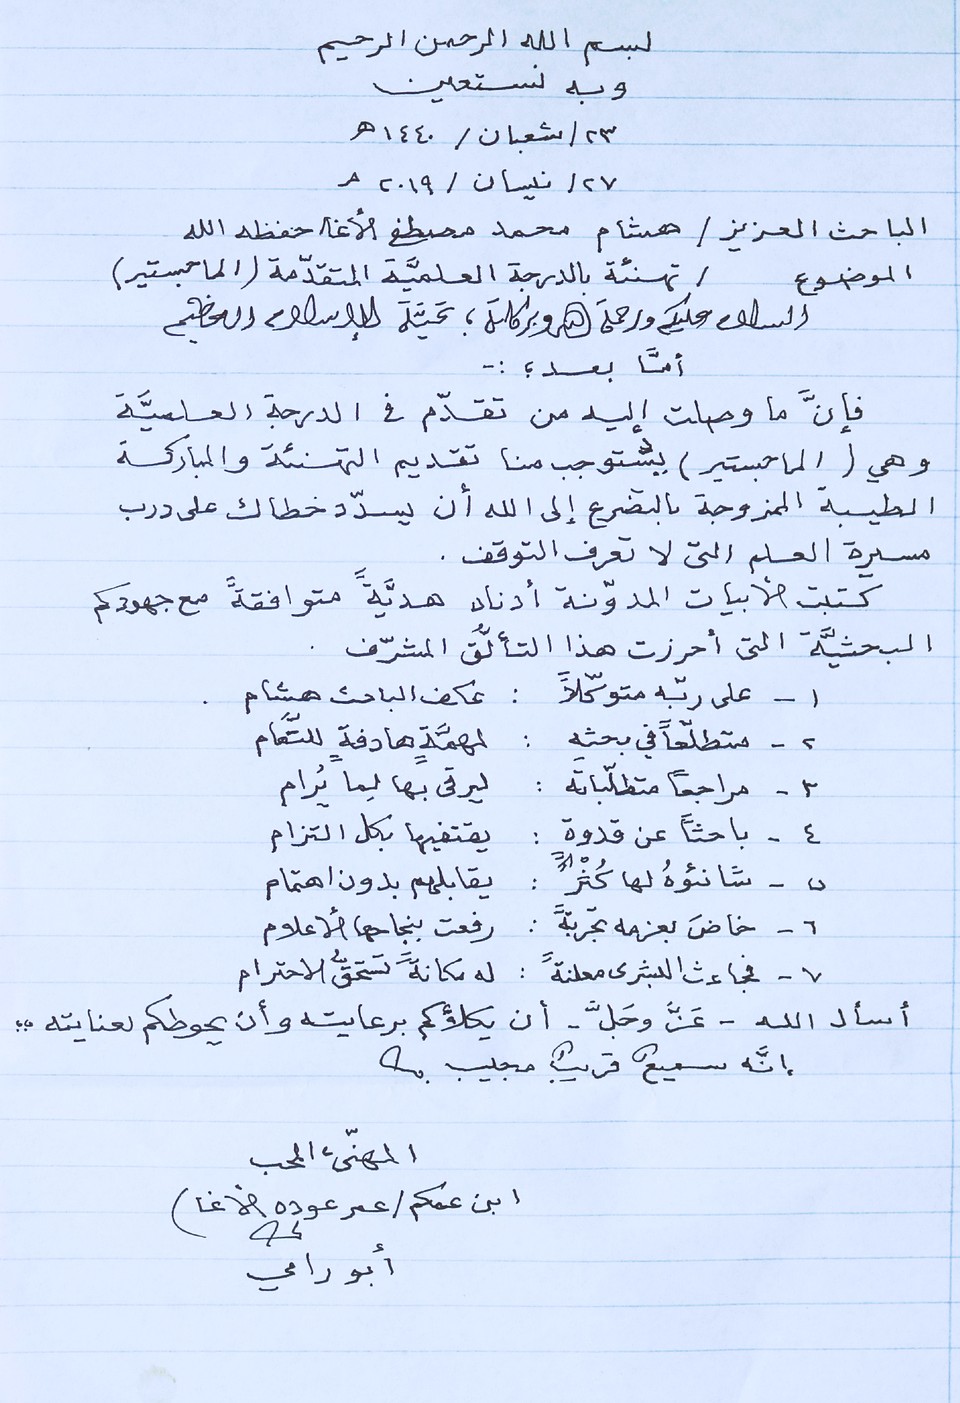 بسم الله الرحمن الرحيم
وبه نستعين
٢٣/ شعبان / ١٤٤٠هـ
٢٧/ نيسان / ٢٠١٩ م
الباحث العزيز / هشام محمد مصطفى الأغا حفظه الله
الموضوع / تهنئة بالدرجة العلميَّة المتقدّمة (الماجستير)
السلام عليكم ورحمة الله وبركاته ؛ تحيَّة الإسلام العظيم
أمَّا بعد ؛ :-
فإنَّ ما وصلت إليه من تقدّم في الدرجة العلميَّة
وهي ( الماجستير ) يستوجب منا تقديم التهنئة والمباركة
الطيبة الممزوجة بالتضرع إلى الله أن يسدّد خطاك على درب
مسيرة العلم التي لا تعرف التوقف .
كتبت الأبيات المدوّنة أدناه هديَّةً متوافقةً مع جهودكم
البحثيَّة التي أحرزت هذا التألُّق المشرّف .
١ - على ربّه متوكّلاً : عكف الباحث هشام .
٢ - متطلّعاً في بحثه : لمهمَّةٍ هادفةٍ للتَّمام
٣ - مراجعاً متطلّباتَه : ليرقى بها لِما يُرام
٤ - باحثاً عن قدوة : يقتفيها بكل التزام
٥ - شانئوهُ لها كُثْرٌ : يقابلهم بدون اهتمام
٦ - خاضَ بعزمه تجربةً : رفعت بنجاحها الأعلام
٧ - فجاءت البشرى معلنةً : له مكانةً تستحقُّ الاحترام
أسأل الله - عَزَّ وجَلَّ - أن يكلؤكم برعايته وأن يحوطكم بعنايته ؛؛
إنَّه سميعٌ قريبٌ مجيب .
المهنّئ المحب
ابن عمكم / عمر عوده الأغا )
أبو رامي